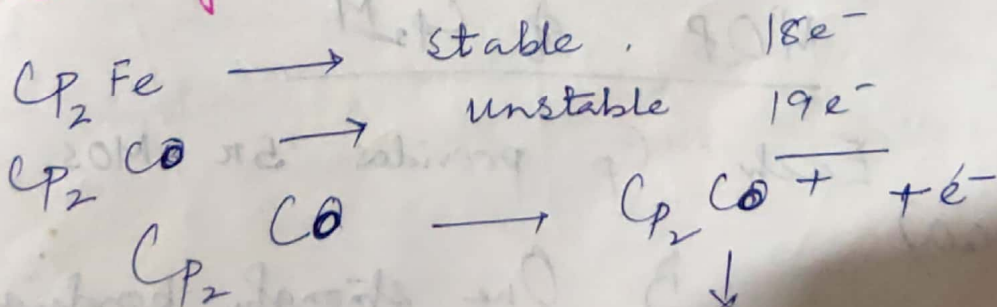 Cp₂Fe → stable. 18e⁻
Cp₂Co → unstable 19e⁻
Cp₂Co → Cp₂Co⁺ + e⁻
↓